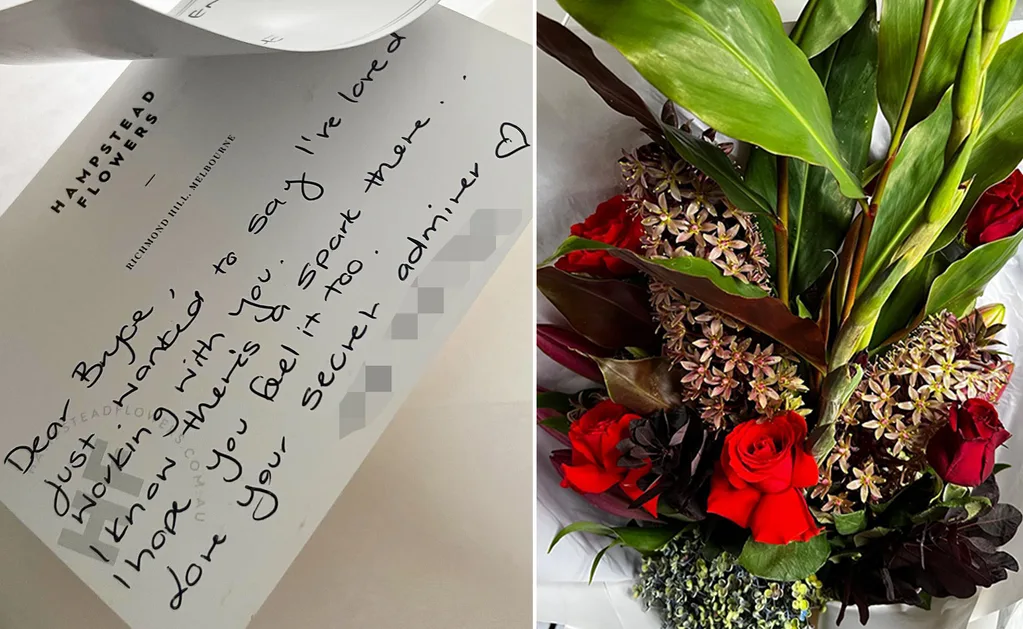 HAMPSTEAD
FLOWERS
—
RICHMOND HILL, MELBOURNE
Dear Bryce,
Just wanted to say I've loved
working with you.
I know there's a spark there..
I hope you feel it too.
Love your secret admirer ♡
HF
HAMPSTEADFLOWERS.COM.AU